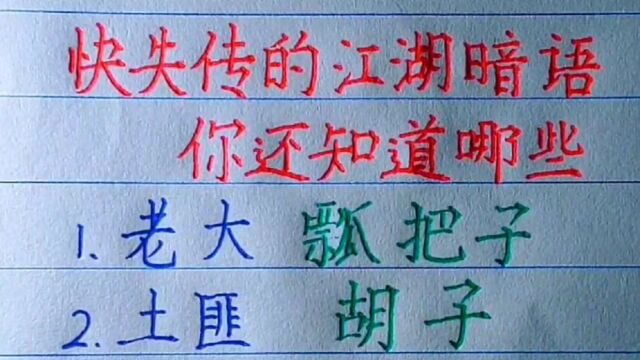 快失传的江湖暗语
你还知道哪些
1. 老大 瓢把子
2. 土匪 胡子